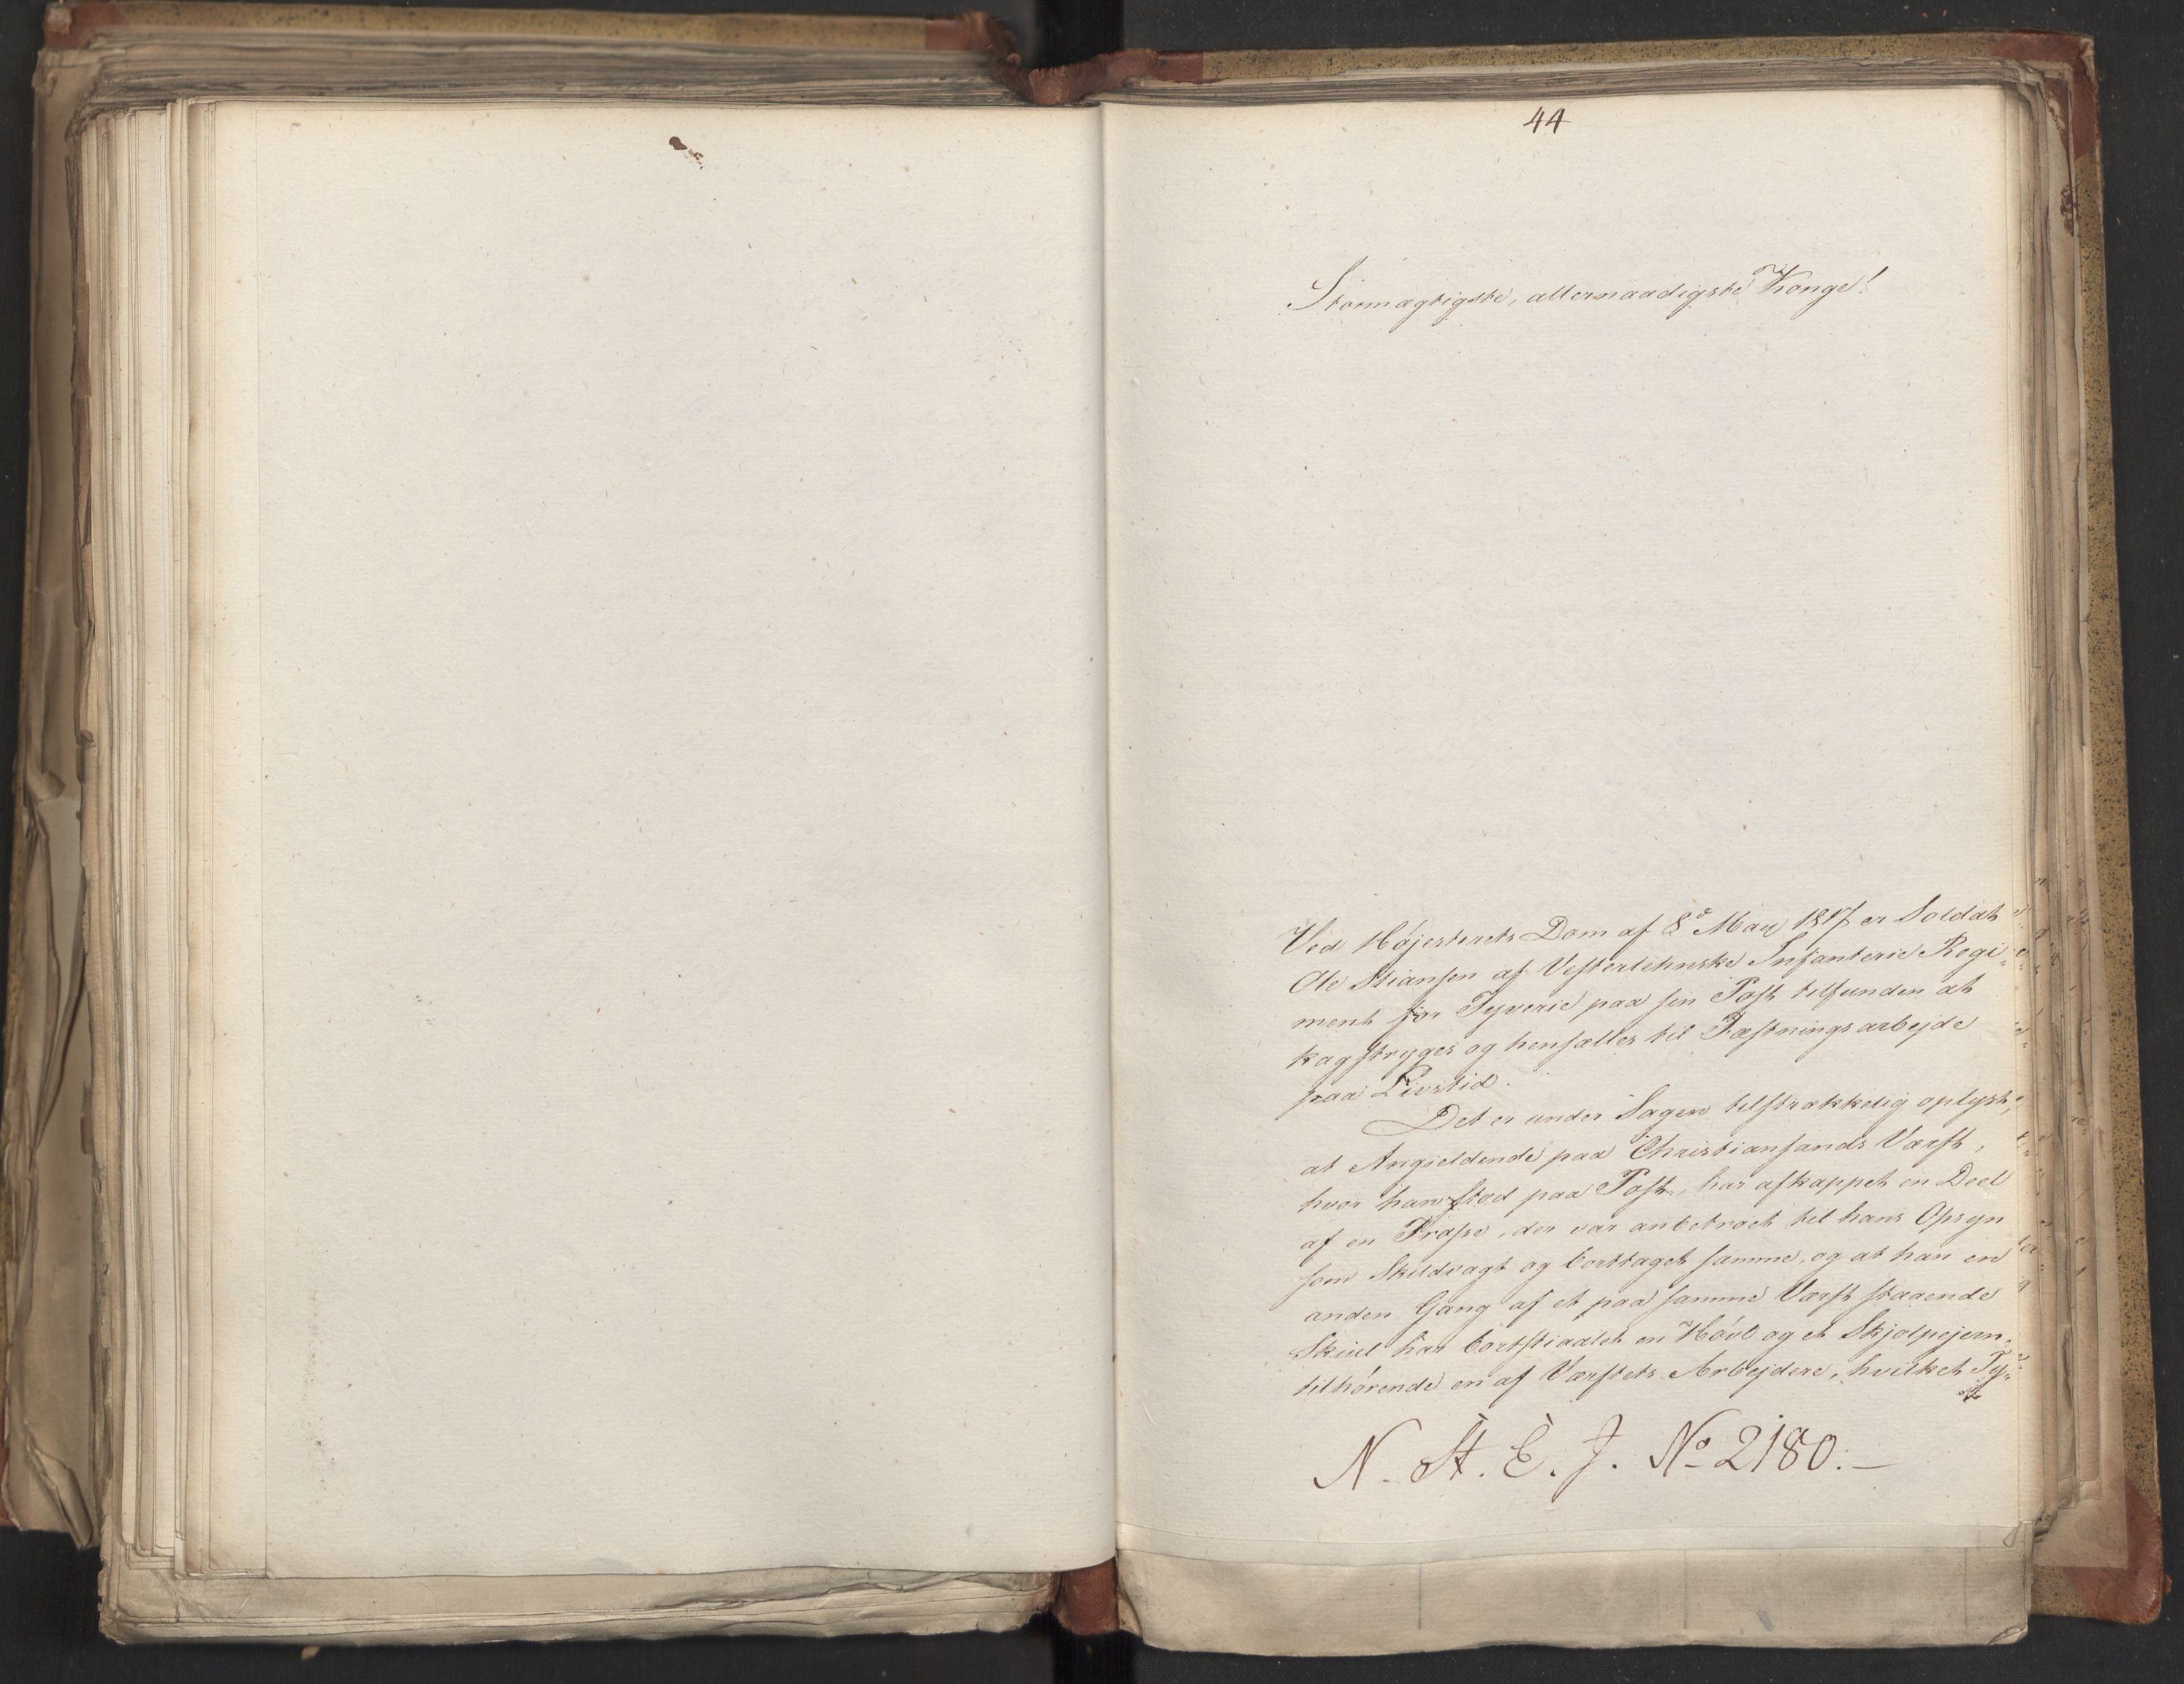 44
Stormægtigste, allernaadigste Konge!
Ved Højesterets Dom af 8de May 1817 er Soldat
Ole Stiansen af Vesterlehnske Infanterie Regi-
ment for Tyverie paa sin Post tilfunden at
kagstryges og hensættes til Fæstningsarbejde
paa Livstid.
Det er under Sagen tilstrækkelig oplyst,
at Angieldende paa Christiansands Værft,
hvor han stod paa Post, har afkappet en Deel
af en Trosse, der var anbetroet til hans Opsyn
som Skildvagt og borttaget samme, og at han en
anden Gang af et paa samme Værft staaende
Skiul har bortstiaalet en Høvl og et Skjolpejern,
tilhørende en af Værftets Arbejdere, hvilket Ty-
N. St. E. J. No 2180.-